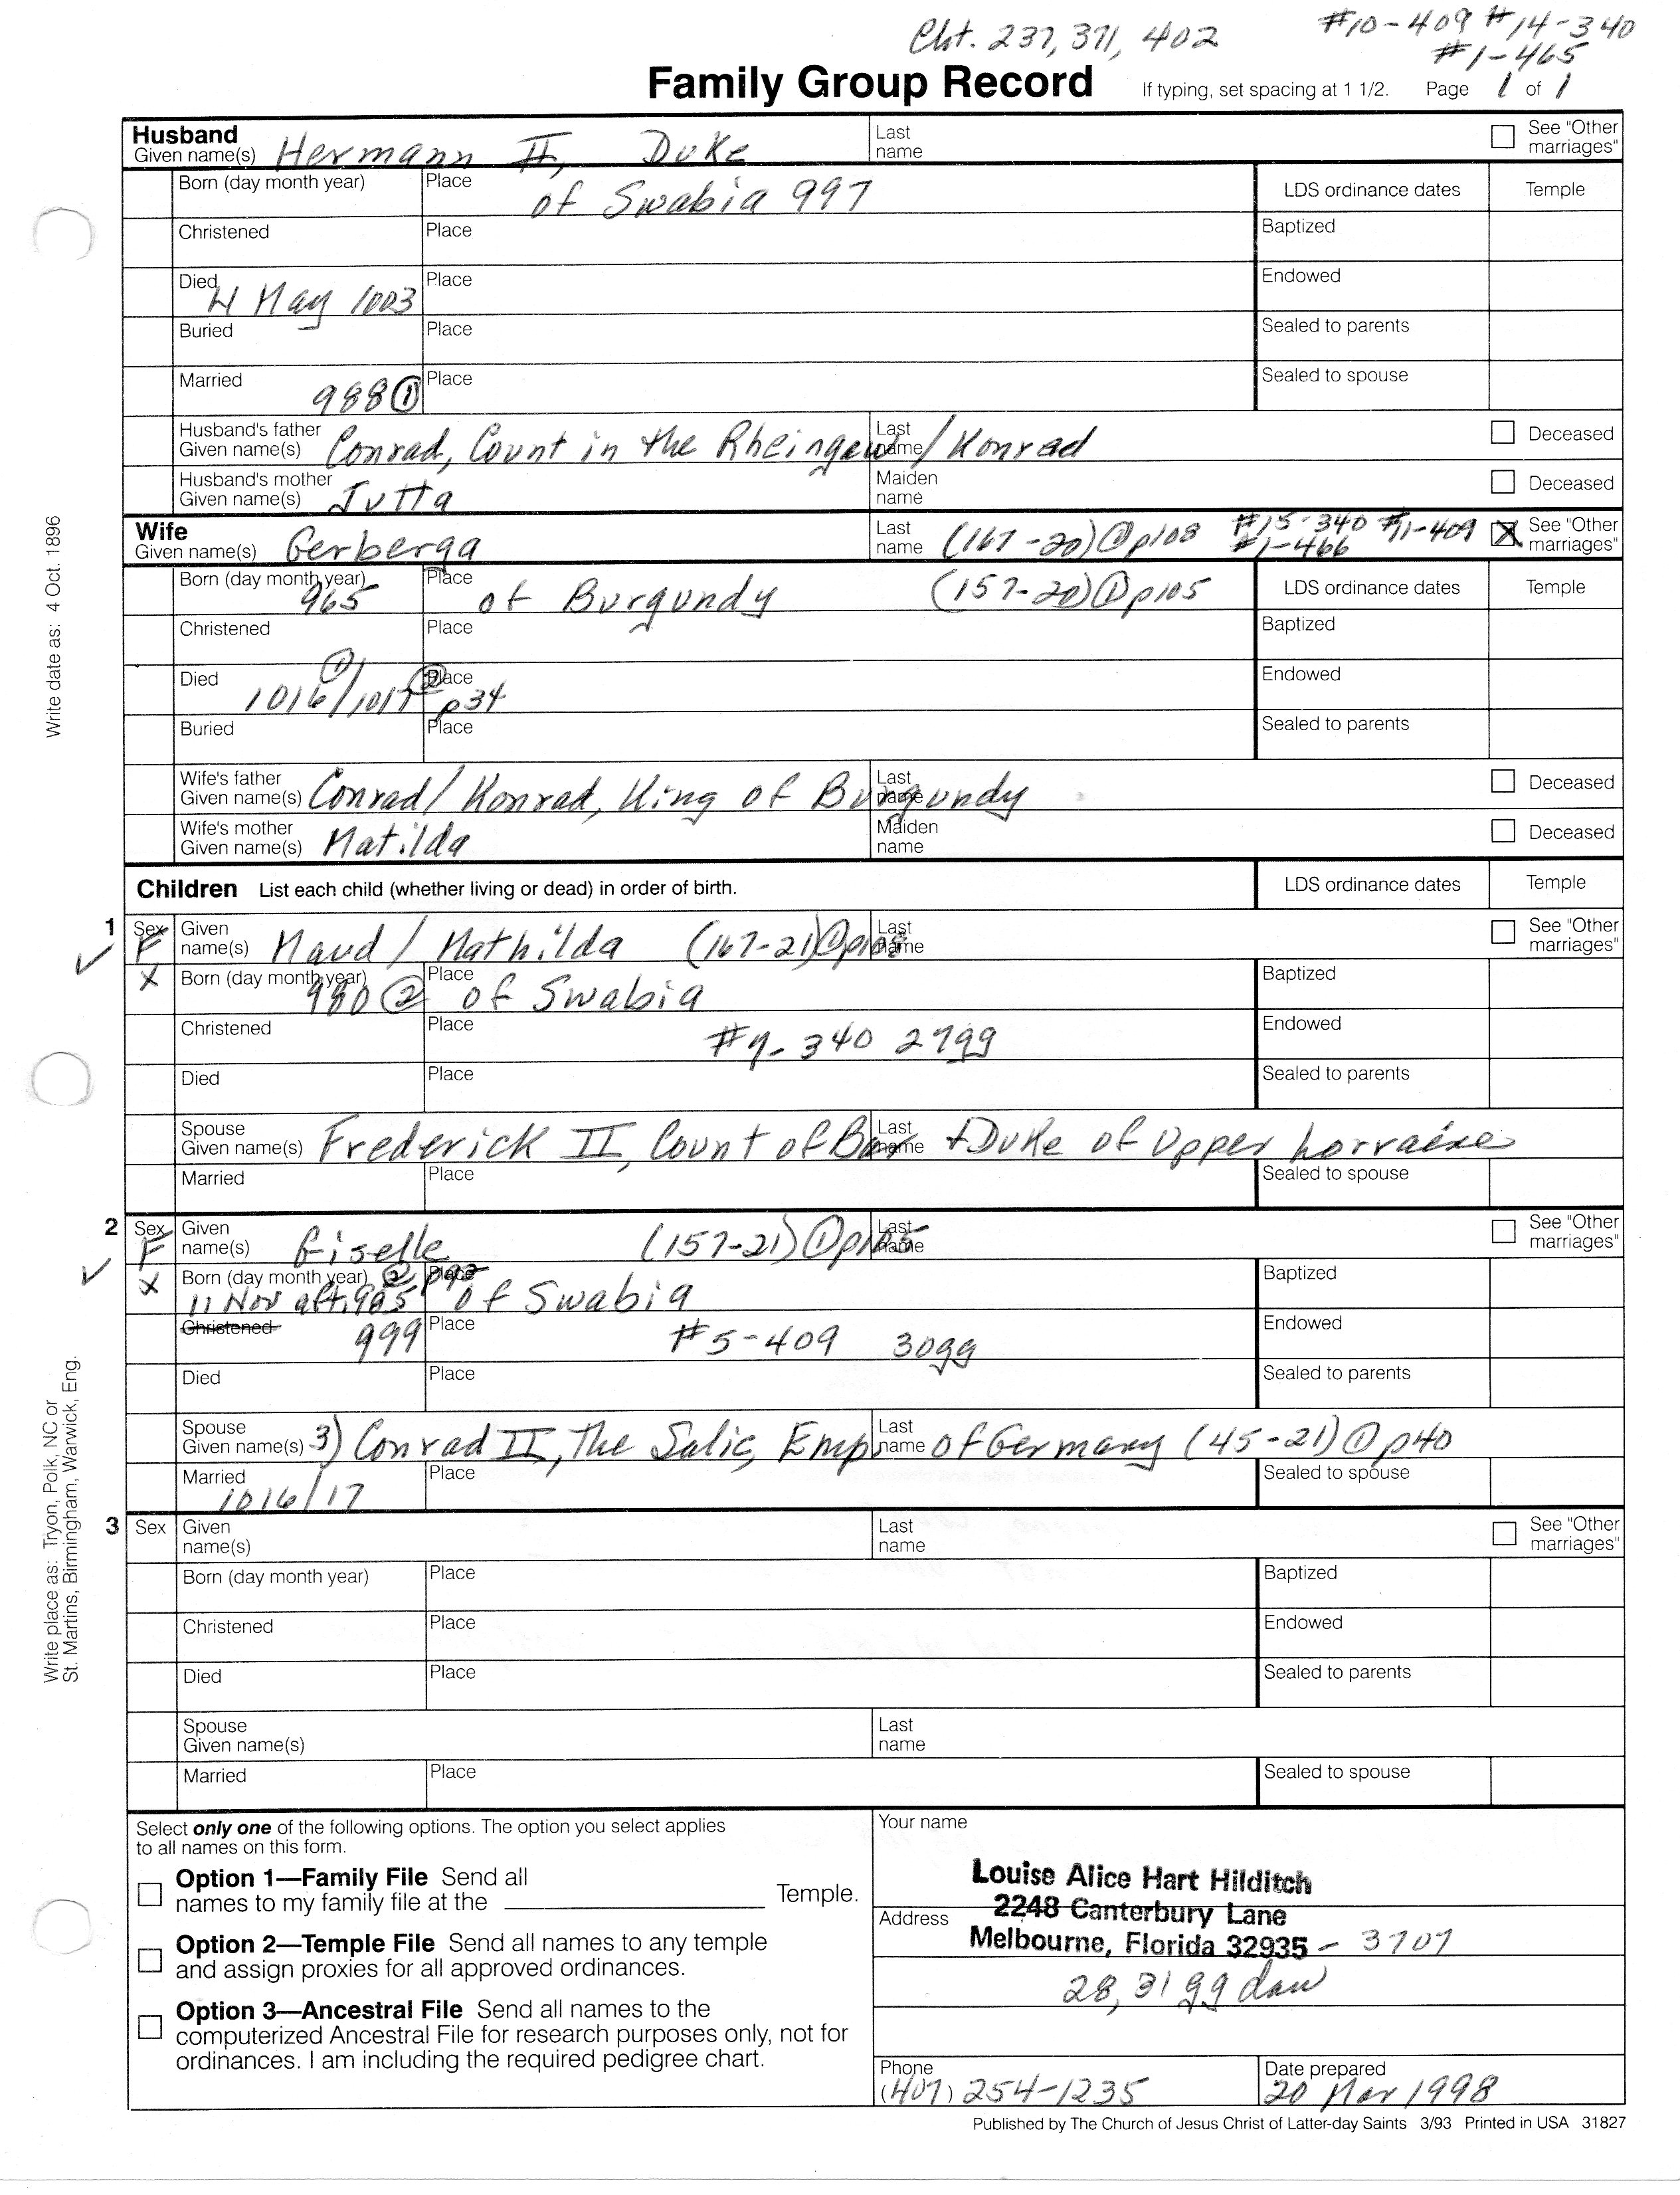 Cht. 237, 371, 402 #10-409 #14-340
#1-465
Family Group Record If typing, set spacing at 1 1/2. Page 1 of 1
Husband
Given name(s) Hermann II, Duke Last name See "Other marriages"
Born (day month year) Place of Swabia 997 LDS ordinance dates Temple
Christened Place Baptized
Died 4 May 1003 Place Endowed
Buried Place Sealed to parents
Married 988 ① Place Sealed to spouse
Husband's father Given name(s) Conrad, Count in the Rheingau / Konrad Last name Deceased
Husband's mother Given name(s) Jutta Maiden name Deceased
Wife
Given name(s) Gerberga Last name (167-20) ① p108 #15-340 #11-409 #1-466 X See "Other marriages"
Born (day month year) 965 Place of Burgundy (157-20) ① p105 LDS ordinance dates Temple
Christened Place Baptized
Died 1016 ①/1017 ② p34 Place Endowed
Buried Place Sealed to parents
Wife's father Given name(s) Conrad/Konrad, King of Burgundy Last name Deceased
Wife's mother Given name(s) Matilda Maiden name Deceased
Children List each child (whether living or dead) in order of birth. LDS ordinance dates Temple
1 Sex F Given name(s) Maud / Mathilda (167-21) ① Last name See "Other marriages"
X Born (day month year) 980 ② Place of Swabia Baptized
Christened Place #7-340 27gg Endowed
Died Place Sealed to parents
Spouse Given name(s) Frederick II, Count of Bar + Duke of Upper Lorraine Last name
Married Place Sealed to spouse
2 Sex F Given name(s) Giselle (157-21) ① p105 Last name See "Other marriages"
X Born (day month year) 11 Nov aft. 985 ② Place of Swabia Baptized
Christened 999 Place #5-409 30gg Endowed
Died Place Sealed to parents
Spouse Given name(s) 3) Conrad II, The Salic, Emp. of Germany (45-21) ① p40 Last name
Married 1016/17 Place Sealed to spouse
3 Sex Given name(s) Last name See "Other marriages"
Born (day month year) Place Baptized
Christened Place Endowed
Died Place Sealed to parents
Spouse Given name(s) Last name
Married Place Sealed to spouse
Write date as: 4 Oct. 1896
Write place as: Tryon, Polk, NC or
St. Martins, Birmingham, Warwick, Eng.
Select only one of the following options. The option you select applies
to all names on this form.
Option 1—Family File Send all
names to my family file at the Temple.
Option 2—Temple File Send all names to any temple
and assign proxies for all approved ordinances.
Option 3—Ancestral File Send all names to the
computerized Ancestral File for research purposes only, not for
ordinances. I am including the required pedigree chart.
Your name
Louise Alice Hart Hilditch
Address 2248 Canterbury Lane
Melbourne, Florida 32935 - 3707
28, 31 gg dau
Phone (407) 254-1235 Date prepared 20 Mar 1998
Published by The Church of Jesus Christ of Latter-day Saints 3/93 Printed in USA 31827